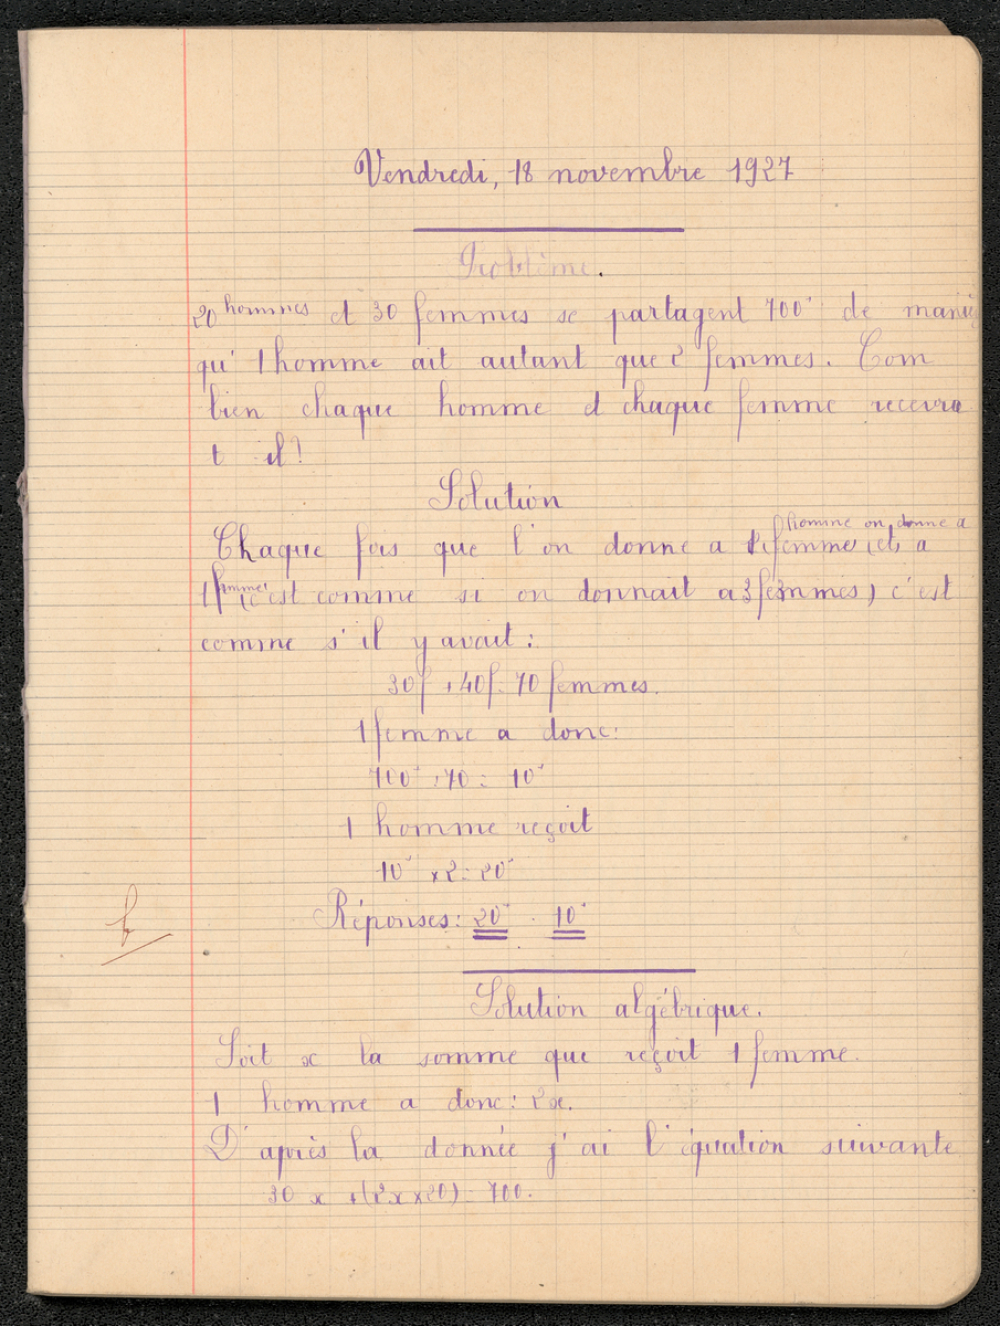 Vendredi, 18 novembre 1927
Problème.
20 hommes et 30 femmes se partagent 700f de maniè
qu'1 homme ait autant que 2 femmes. Com
bien chaque homme et chaque femme recevra
t il?
Solution
Chaque fois que l'on donne a 1 homme on donne a 2 femmes et a
1 femme (c'est comme si on donnait a 3 femmes) c'est
comme s'il y avait:
30f + 40f = 70 femmes.
1 femme a donc:
700f : 70 = 10f
1 homme reçoit
10f x 2 = 20f
Réponses: 20f . 10f
Solution algébrique.
Soit x la somme que reçoit 1 femme.
1 homme a donc: 2x.
D'après la donnée j'ai l'équation suivante
30 x + (2x x 20) = 700.